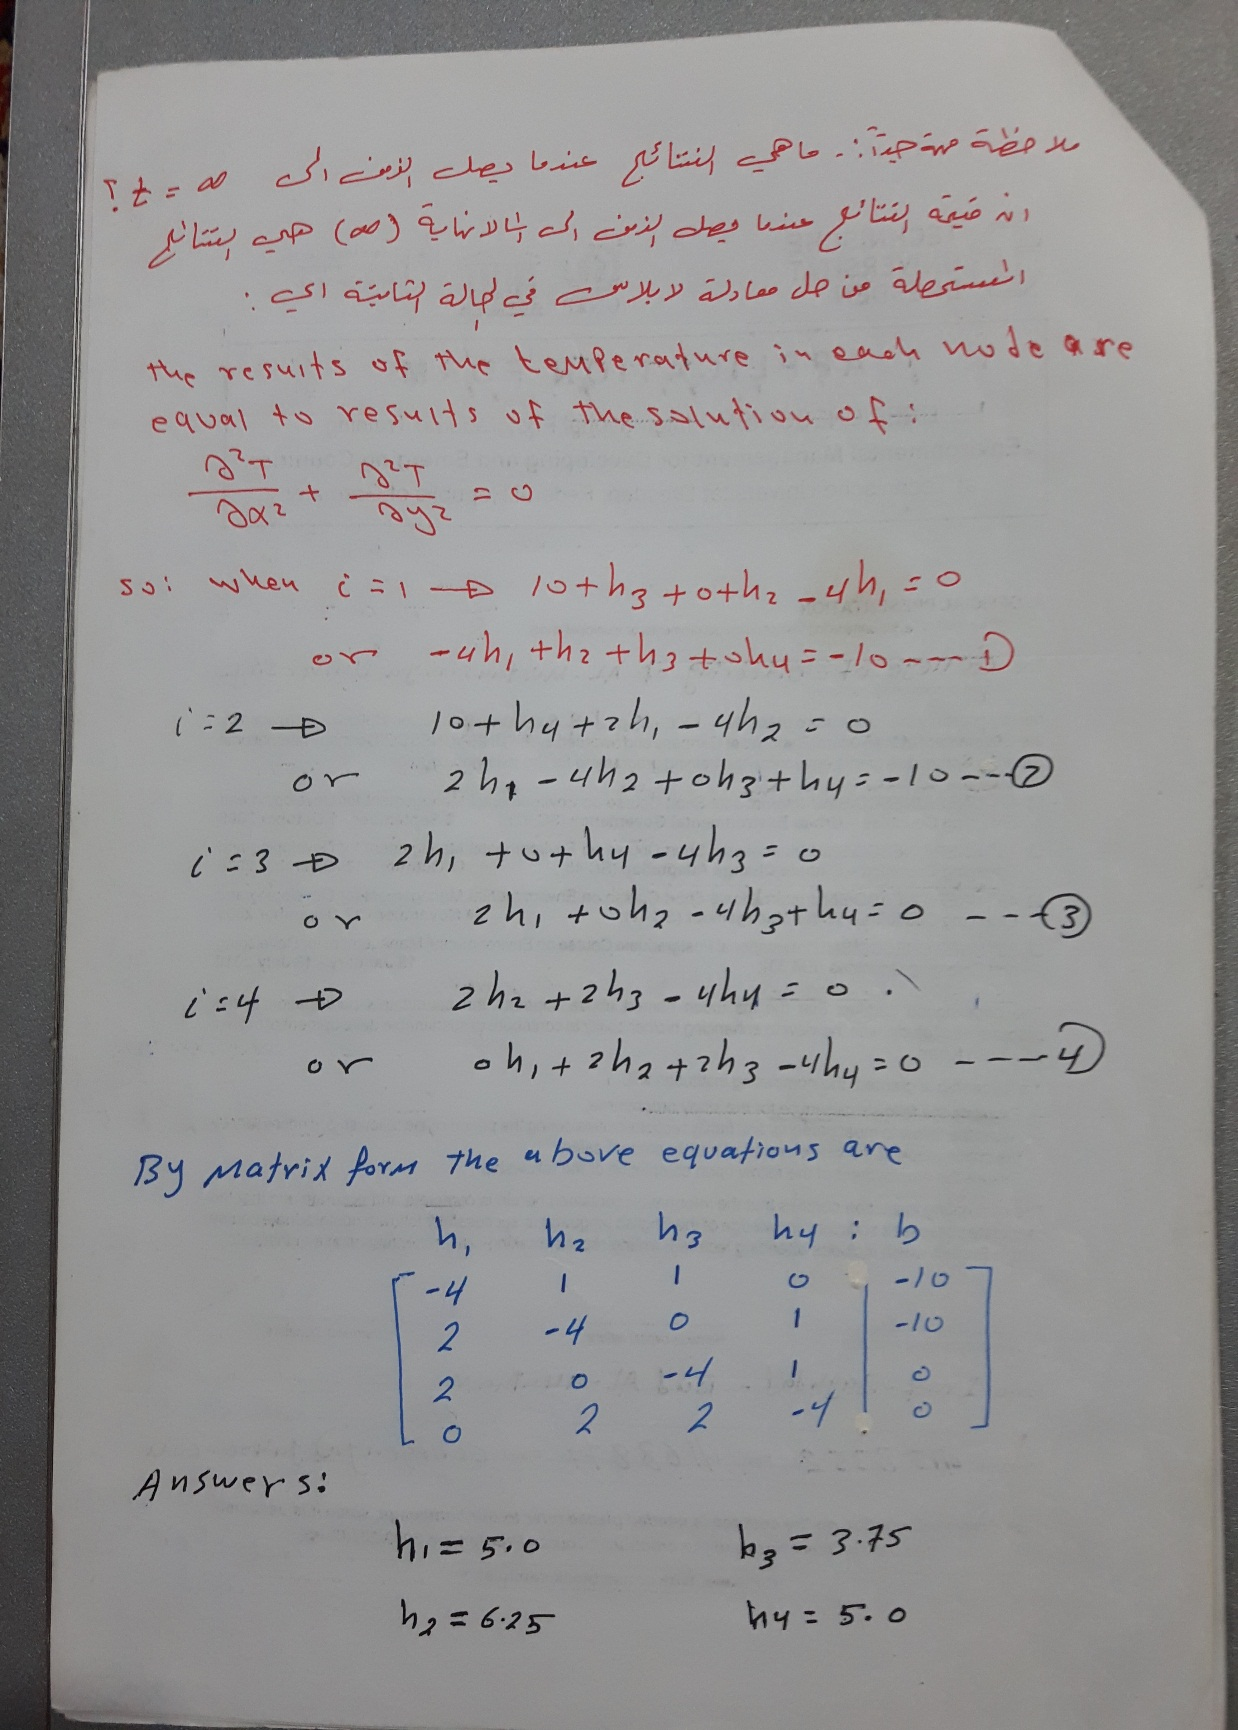 ملاحظة مهمة جداً :. ماهي النتائج عندما يصل الزمن الى t = ∞ ؟
ان قيمة النتائج عندما يصل الزمن الى المالانهاية (∞) هي النتائج
المستحصلة من حل معادلة لابلاس في الحالة الثابتة اي :
the results of the temperature in each node are
equal to results of the solution of :
∂²T/∂x² + ∂²T/∂y² = 0
so: when i = 1 → 10 + h₃ + 0 + h₂ - 4h₁ = 0
or -4h₁ + h₂ + h₃ + 0h₄ = -10 --- ①
i = 2 → 10 + h₄ + 2h₁ - 4h₂ = 0
or 2h₁ - 4h₂ + 0h₃ + h₄ = -10 --- ②
i = 3 → 2h₁ + 0 + h₄ - 4h₃ = 0
or 2h₁ + 0h₂ - 4h₃ + h₄ = 0 --- ③
i = 4 → 2h₂ + 2h₃ - 4h₄ = 0 .
or 0h₁ + 2h₂ + 2h₃ - 4h₄ = 0 ---- ④
By Matrix form the above equations are
h₁ h₂ h₃ h₄ : b
-4 1 1 0 -10
2 -4 0 1 -10
2 0 -4 1 0
0 2 2 -4 0
Answers:
h₁ = 5.0 h₃ = 3.75
h₂ = 6.25 h₄ = 5.0